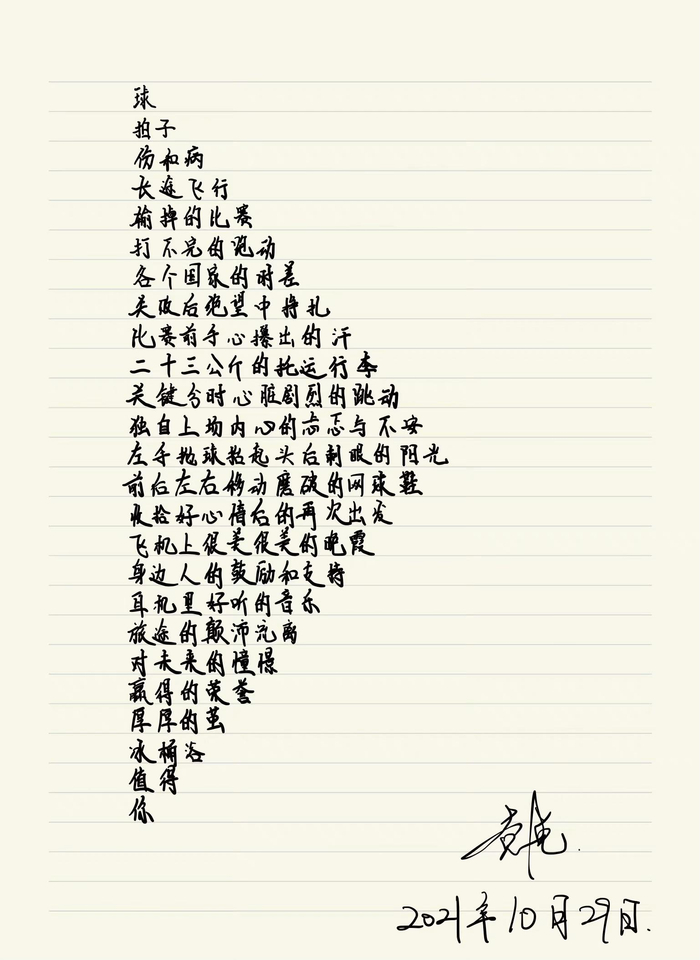 球
拍子
伤和病
长途飞行
输掉的比赛
打不完的跑动
各个国家的时差
失败后绝望中挣扎
比赛前手心攥出的汗
二十三公斤的托运行李
关键分时心脏剧烈的跳动
独自上场内心的忐忑与不安
左手抛球抬起头后刺眼的阳光
前后左右移动磨破的网球鞋
收拾好心情后的再次出发
飞机上很美很美的晚霞
身边人的鼓励和支持
耳机里好听的音乐
旅途的颠沛流离
对未来的憧憬
赢得的荣誉
厚厚的茧
冰桶浴
值得
你
2021年10月29日.